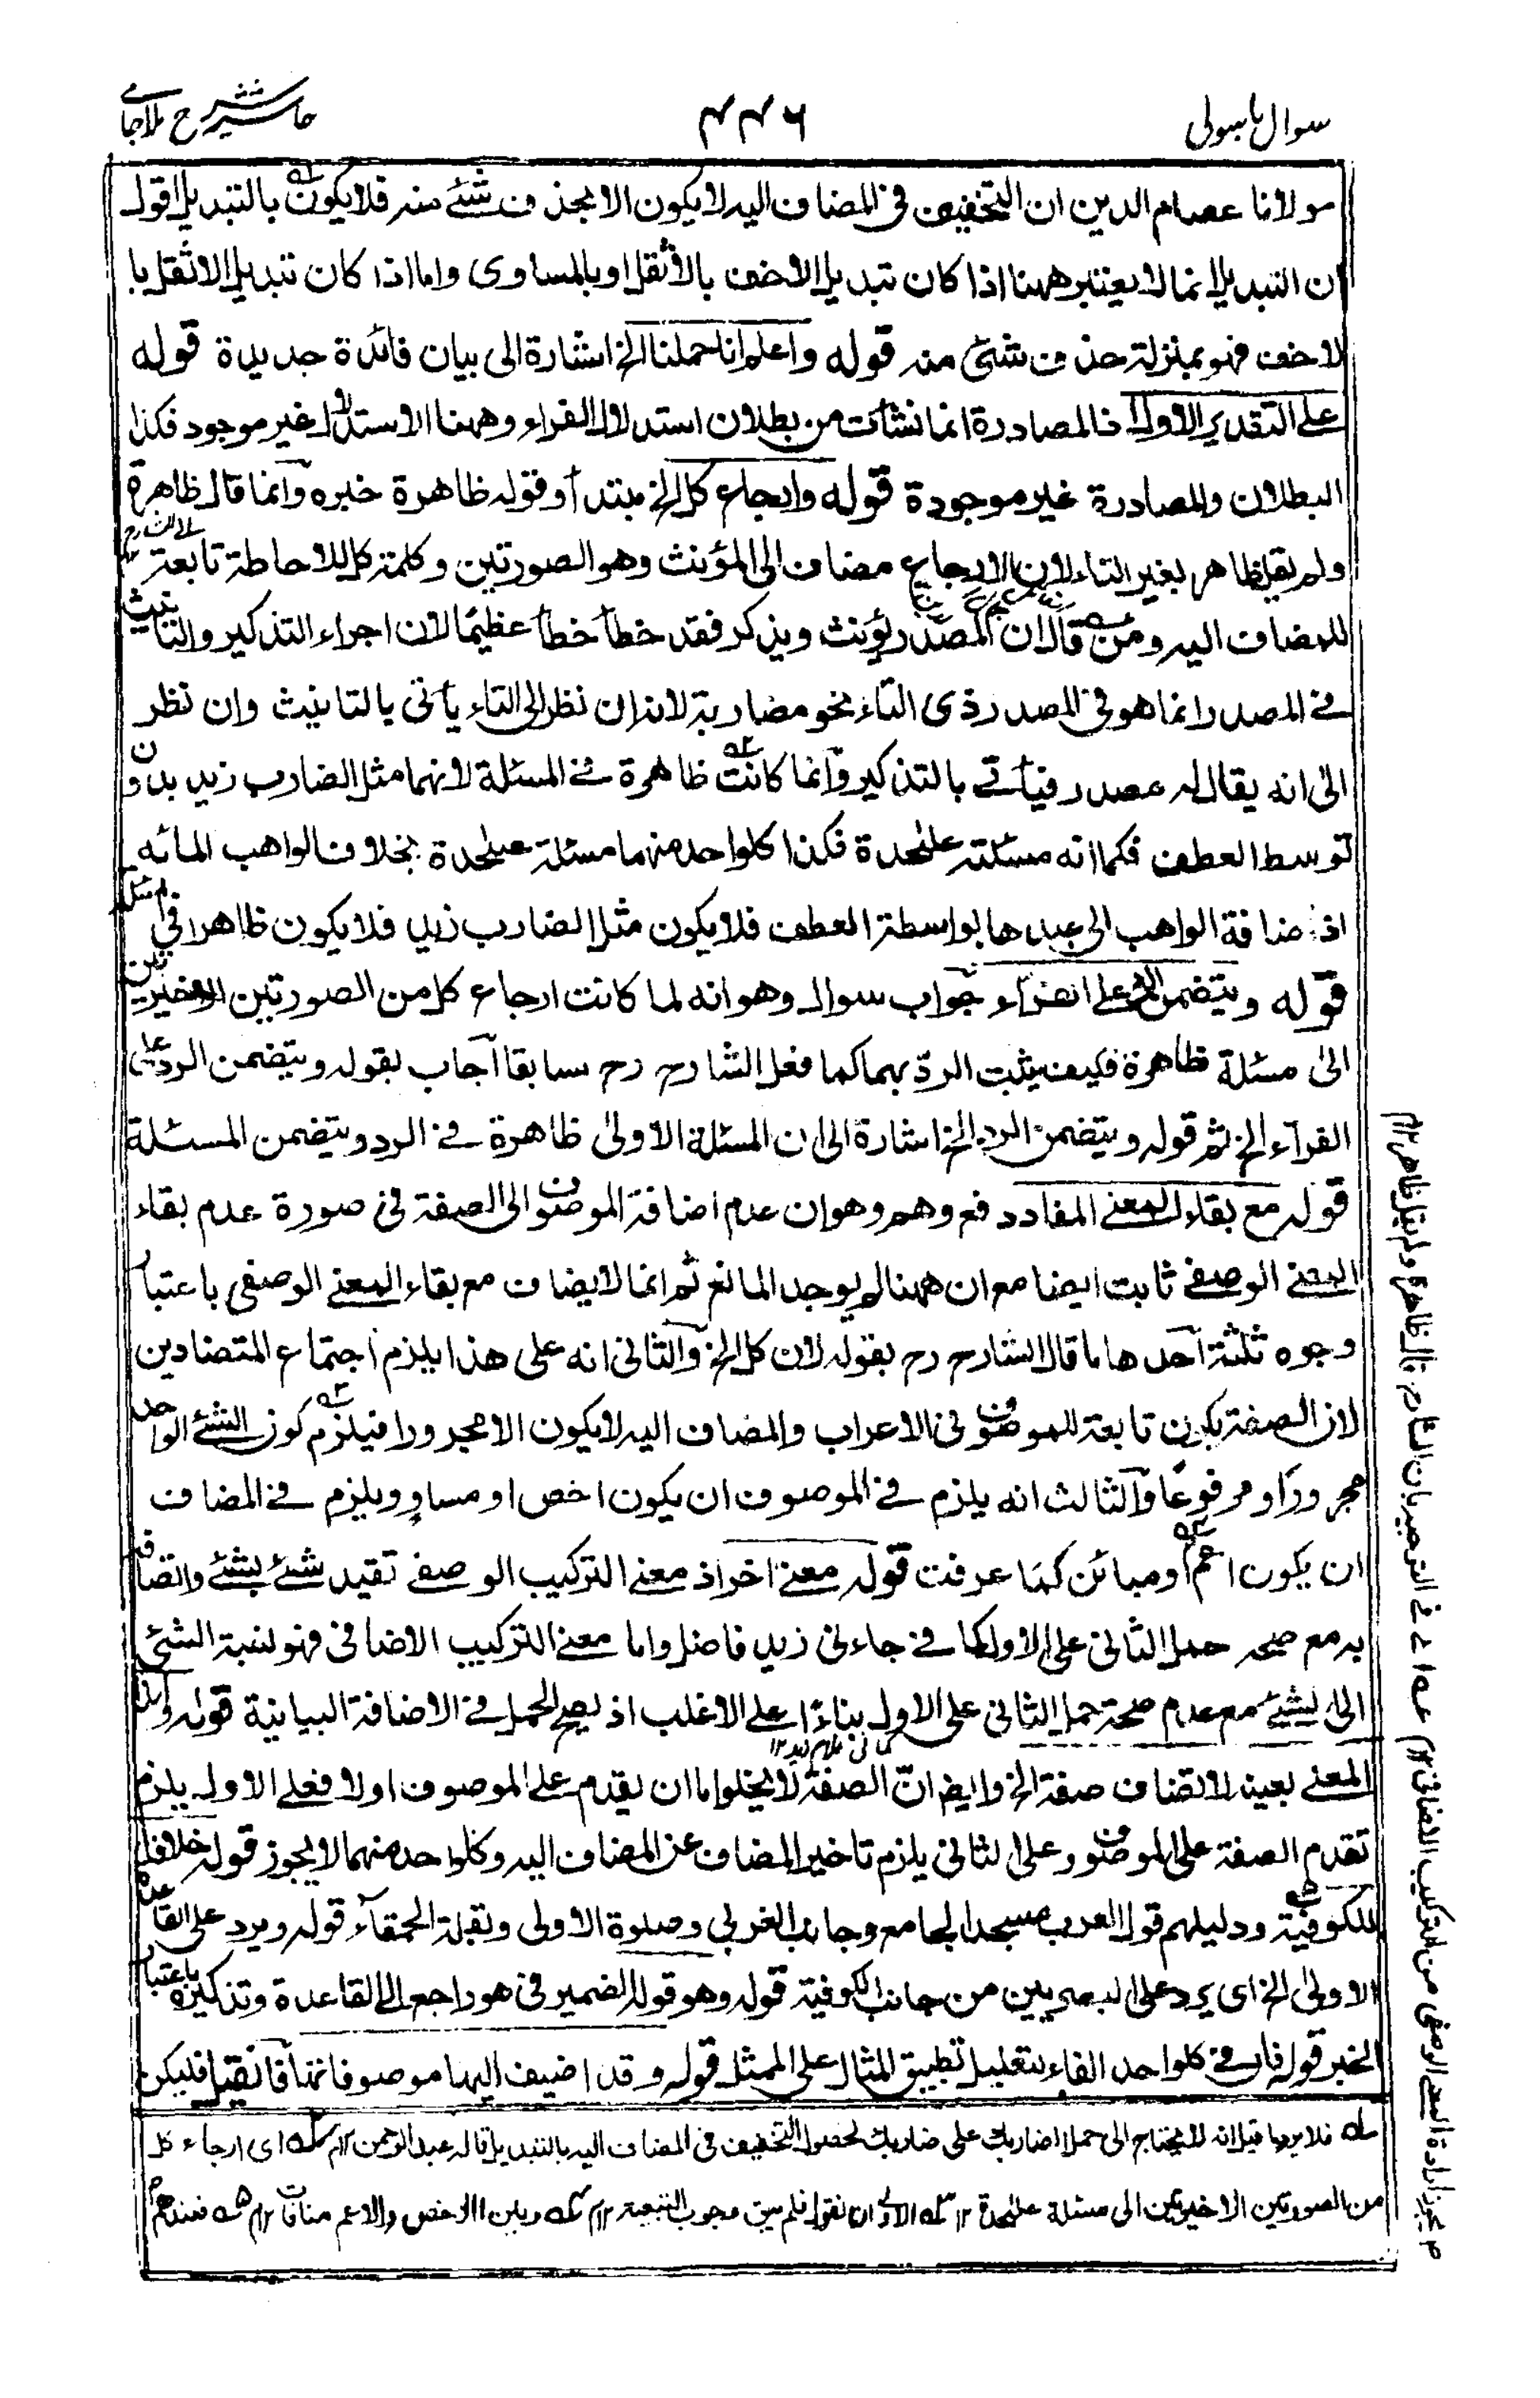 سوال باسولی
۴۴۶
حاشیہ شرح ملا جامے
مولانا عصام الدين ان التخفيف فى المضاف اليه لا يكون الا بحذف شئے منه فلا يكون بالتبديل اقول
ان التبديل انما لا يعتبر ههنا اذا كان تبديل الاخف بالاثقل او بالمساوى واما اذا كان تبديل الاثقل با
لاخف فهو بمنزلة حذف شئ منه قوله واعلم انا حملنا الخ اشارة الى بيان فائدة جديدة قوله
على التقدير الاول فالمصادرة انما نشأت من بطلان استدلال الفراء وههنا الاستدلال غير موجود فكذا
البطلان والمصادرة غير موجودة قوله وارجاع كل الخ مبتدأ وقوله ظاهرة خبره وانما قال ظاهرة
ولم يقل ظاهر بغير التاء لان الارجاع مضاف الى المؤنث وهو الصورتين وكلمة كل للاحاطة تابعة
للمضاف اليه ومن قال ان المصدر يؤنث ويذكر فقد خطأ خطأ عظيما لان اجراء التذكير والتانيث
فے المصدر انما هو فى المصدر ذى التاء نحو مضاربة لانه ان نظر الى التاء يأتى بالتانيث وان نظر
الى انه يقال له مصدر فيأتے بالتذكير وانما كانت ظاهرة فے المسئلة لانهما مثل الضارب زيد بدون
توسط العطف فكما انه مسئلة علىحدة فكذا كل واحد منهما مسئلة علىحدة بخلاف الواهب المائه
اذ اضافة الواهب الى عبدها بواسطة العطف فلا يكون مثل الضارب زيد فلا يكون ظاهرا فى المسئلة
قوله ويتضمن الرد على الفراء جواب سوال وهو انه لما كانت ارجاع كل من الصورتين الاخيرتين
الى مسئلة ظاهرة فكيف يثبت الرد بهما كما فعل الشارح رح سابقا اجاب بقوله ويتضمن الرد على
الفراء الخ ثم قوله ويتضمن الرد الخ اشارة الى ان المسئلة الاولى ظاهرة فے الرد ويتضمن المسئلة
قوله مع بقاء المعنى المفاد دفع وهم وهو ان عدم اضافة الموصوف الى الصفة فى صورة عدم بقاء
المعنى الوصفے ثابت ايضا مع ان ههنا لم يوجد المانع ثم انما لا يضاف مع بقاء المعنى الوصفى باعتبار
وجوه ثلثة احدها ما قال الشارح رح بقوله لان كل الخ والثانى انه على هذا يلزم اجتماع المتضادين
لان الصفة يكون تابعة للموصوف فى الاعراب والمضاف اليه لا يكون الا مجرورا فيلزم كون الشئ الواحد
مجرورا ومرفوعا والثالث انه يلزم فے الموصوف ان يكون اخص او مساو ويلزم فے المضاف
ان يكون اعم او مبائن كما عرفت قوله معنى اخر اذ معنى التركيب الوصفے تقيد شئ بشئ واتصافه
به مع صحة حمل الثانى على الاول كما فے جاءنى زيد فاضل واما معنى التركيب الاضافى فهو لنسبة الشئ
الى شئ مع عدم صحة حمل الثانى على الاول بناء على الاغلب اذ يصح الحمل فے الاضافة البيانية قوله
المعنى بعينه لاتضاف صفة الخ وايضا ان الصفة لا يخلو اما ان يقدم على الموصوف او لا فعلى الاول يلزم
تقدم الصفة على الموصوف وعلى الثانى يلزم تاخير المضاف عن المضاف اليه وكل واحد منهما لا يجوز قوله خلافا
للكوفية ودليلهم قول العرب مسجد الجامع وجانب الغربى وصلوة الاولى وبقلة الحمقاء قوله ويرد على القاعدة
الاولى الخ اى يرد على البصريين من جانب الكوفية قوله وهو قوله الضمير فى هو راجع الى القاعدة وتذكيره باعتبار
الخبر قوله فان فے كل واحد الفاء لتعليل تطبيق المثال على الممثل قوله وقد اضيف اليها موصوفاتها
فلا يرد ما قيل انه لا يحتاج الى حمل الضاربك على ضاربك لحصول التخفيف فى المضاف اليه بالتبديل قاله عبد الرحمن ۱۲م اى ارجاء كل
من الصورتين الاخيرتين الى مسئلة علىحدة ۱۲ وجوب التبعية ۱۲م وبين الاخص والاعم منافات ۱۲م